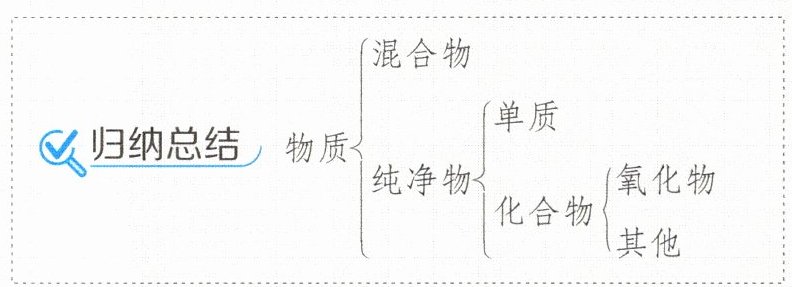 归纳总结
物质
混合物
纯净物
单质
化合物
氧化物
其他